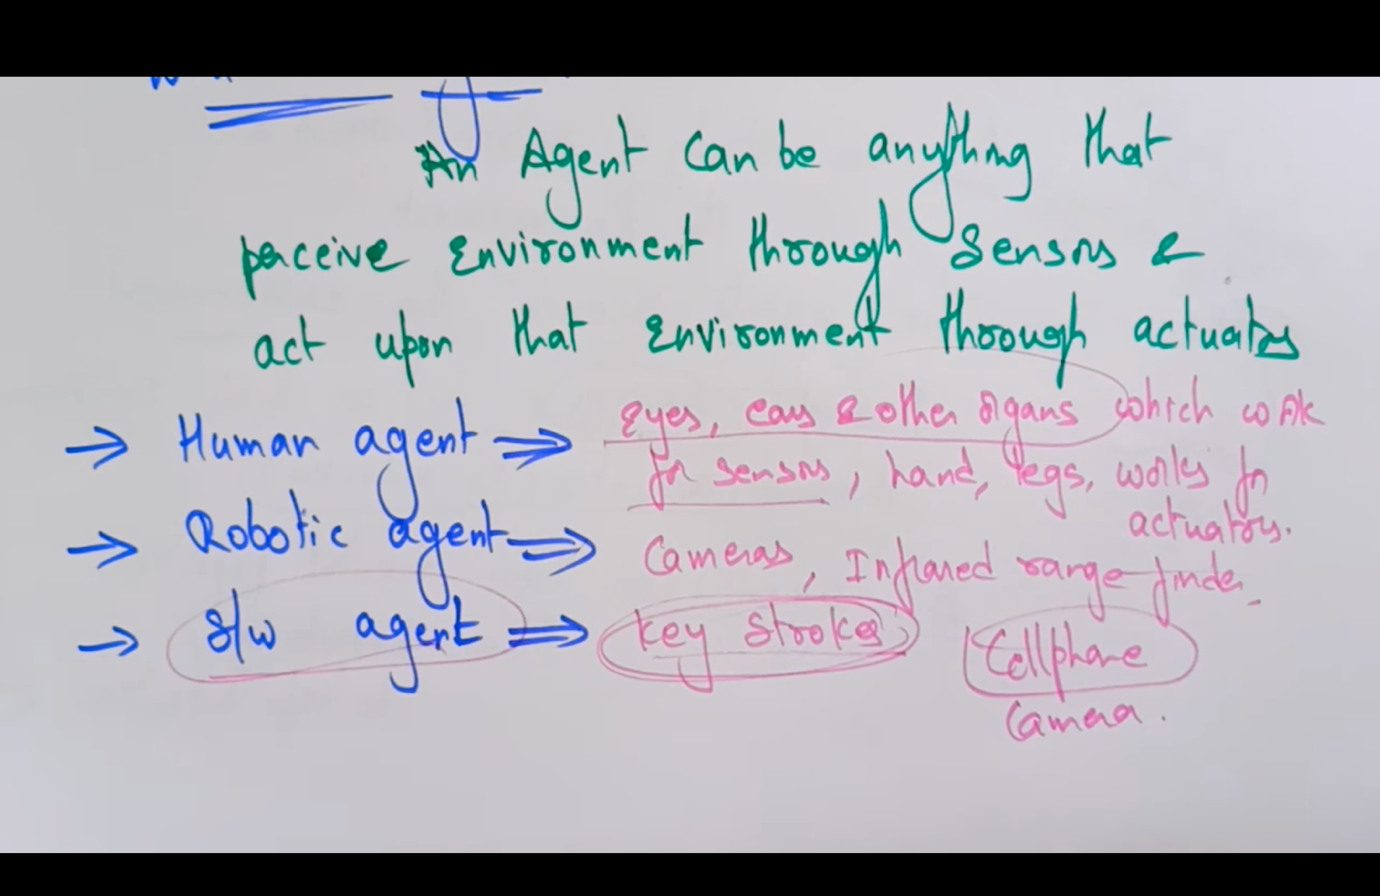 An Agent can be anything that
perceive Environment through Sensors &
act upon that Environment through actuators
→ Human agent ⇒ Eyes, ears & other organs which work
for sensors, hand, legs, works for
actuators.
→ Robotic agent ⇒ Cameras, Infrared range finder.
→ S/w agent ⇒ key strokes Cellphone
Camera.